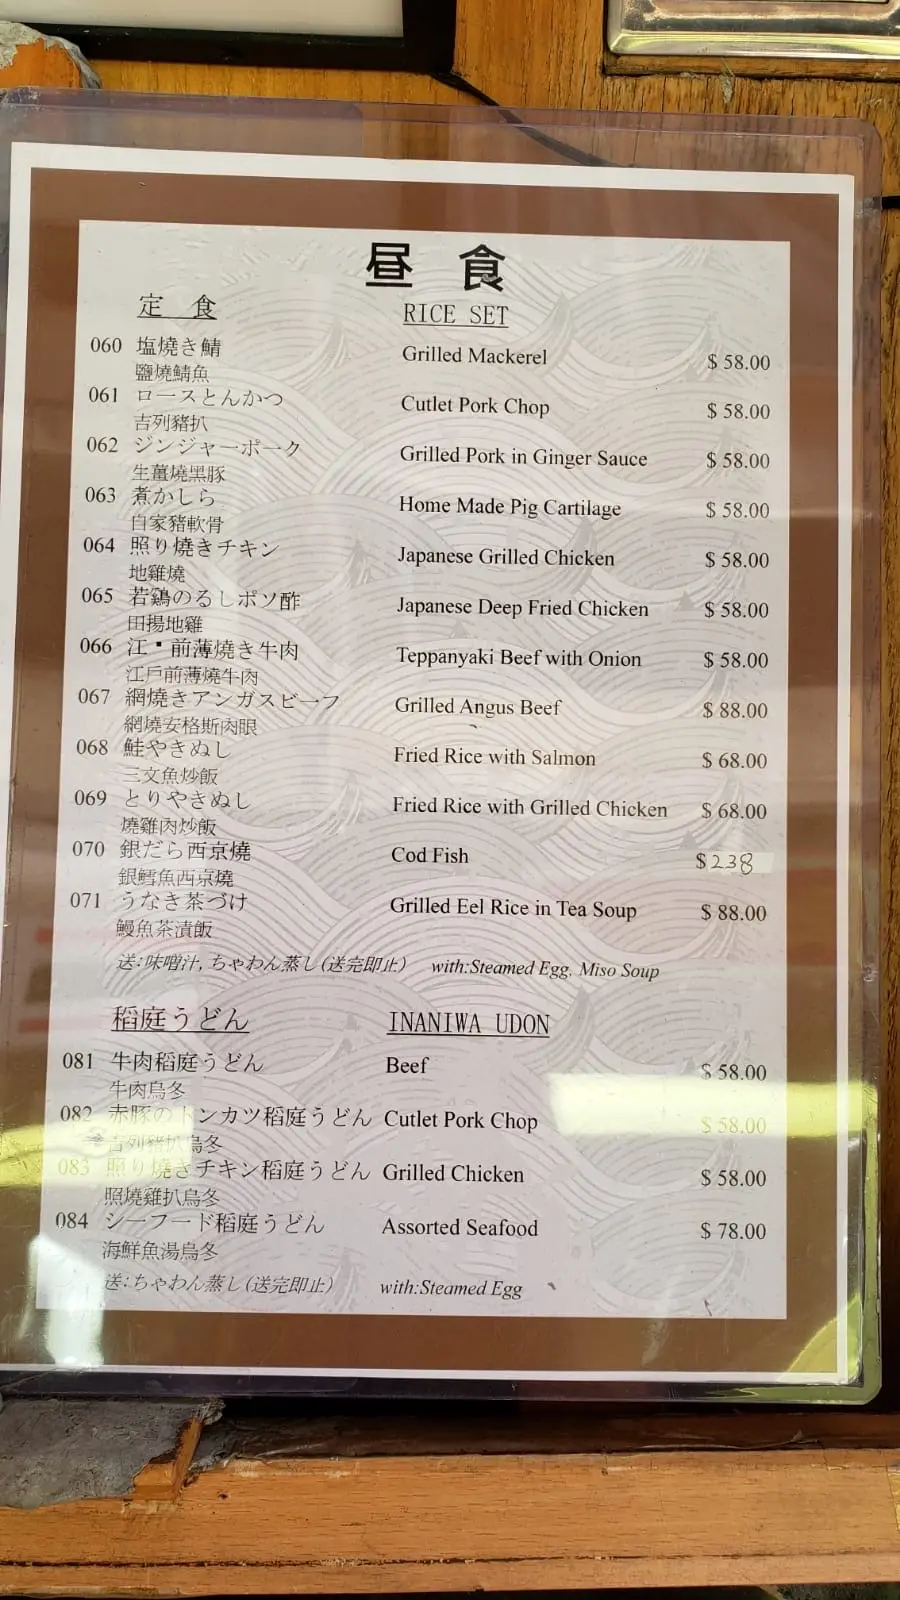 昼 食
定 食 RICE SET
060 塩焼き鯖 Grilled Mackerel $ 58.00
鹽燒鯖魚
061 ロースとんかつ Cutlet Pork Chop $ 58.00
吉列豬扒
062 ジンジャーポーク Grilled Pork in Ginger Sauce $ 58.00
生薑燒黑豚
063 煮かしら Home Made Pig Cartilage $ 58.00
自家豬軟骨
064 照り焼きチキン Japanese Grilled Chicken $ 58.00
地雞燒
065 若鶏のるしポソ酢 Japanese Deep Fried Chicken $ 58.00
田揚地雞
066 江▪前薄焼き牛肉 Teppanyaki Beef with Onion $ 58.00
江戸前薄燒牛肉
067 網焼きアンガスビーフ Grilled Angus Beef $ 88.00
網燒安格斯肉眼
068 鮭やきぬし Fried Rice with Salmon $ 68.00
三文魚炒飯
069 とりやきぬし Fried Rice with Grilled Chicken $ 68.00
燒雞肉炒飯
070 銀だら西京燒 Cod Fish $238
銀鱈魚西京燒
071 うなき茶づけ Grilled Eel Rice in Tea Soup $ 88.00
鰻魚茶漬飯
送:味噌汁,ちゃわん蒸し(送完即止) with:Steamed Egg. Miso Soup
稻庭うどん INANIWA UDON
081 牛肉稻庭うどん Beef $ 58.00
牛肉烏冬
082 赤豚のトンカツ稻庭うどん Cutlet Pork Chop $ 58.00
吉列豬扒烏冬
083 照り燒きチキン稻庭うどん Grilled Chicken $ 58.00
照燒雞扒烏冬
084 シーフード稻庭うどん Assorted Seafood $ 78.00
海鮮魚湯烏冬
送:ちゃわん蒸し(送完即止) with:Steamed Egg